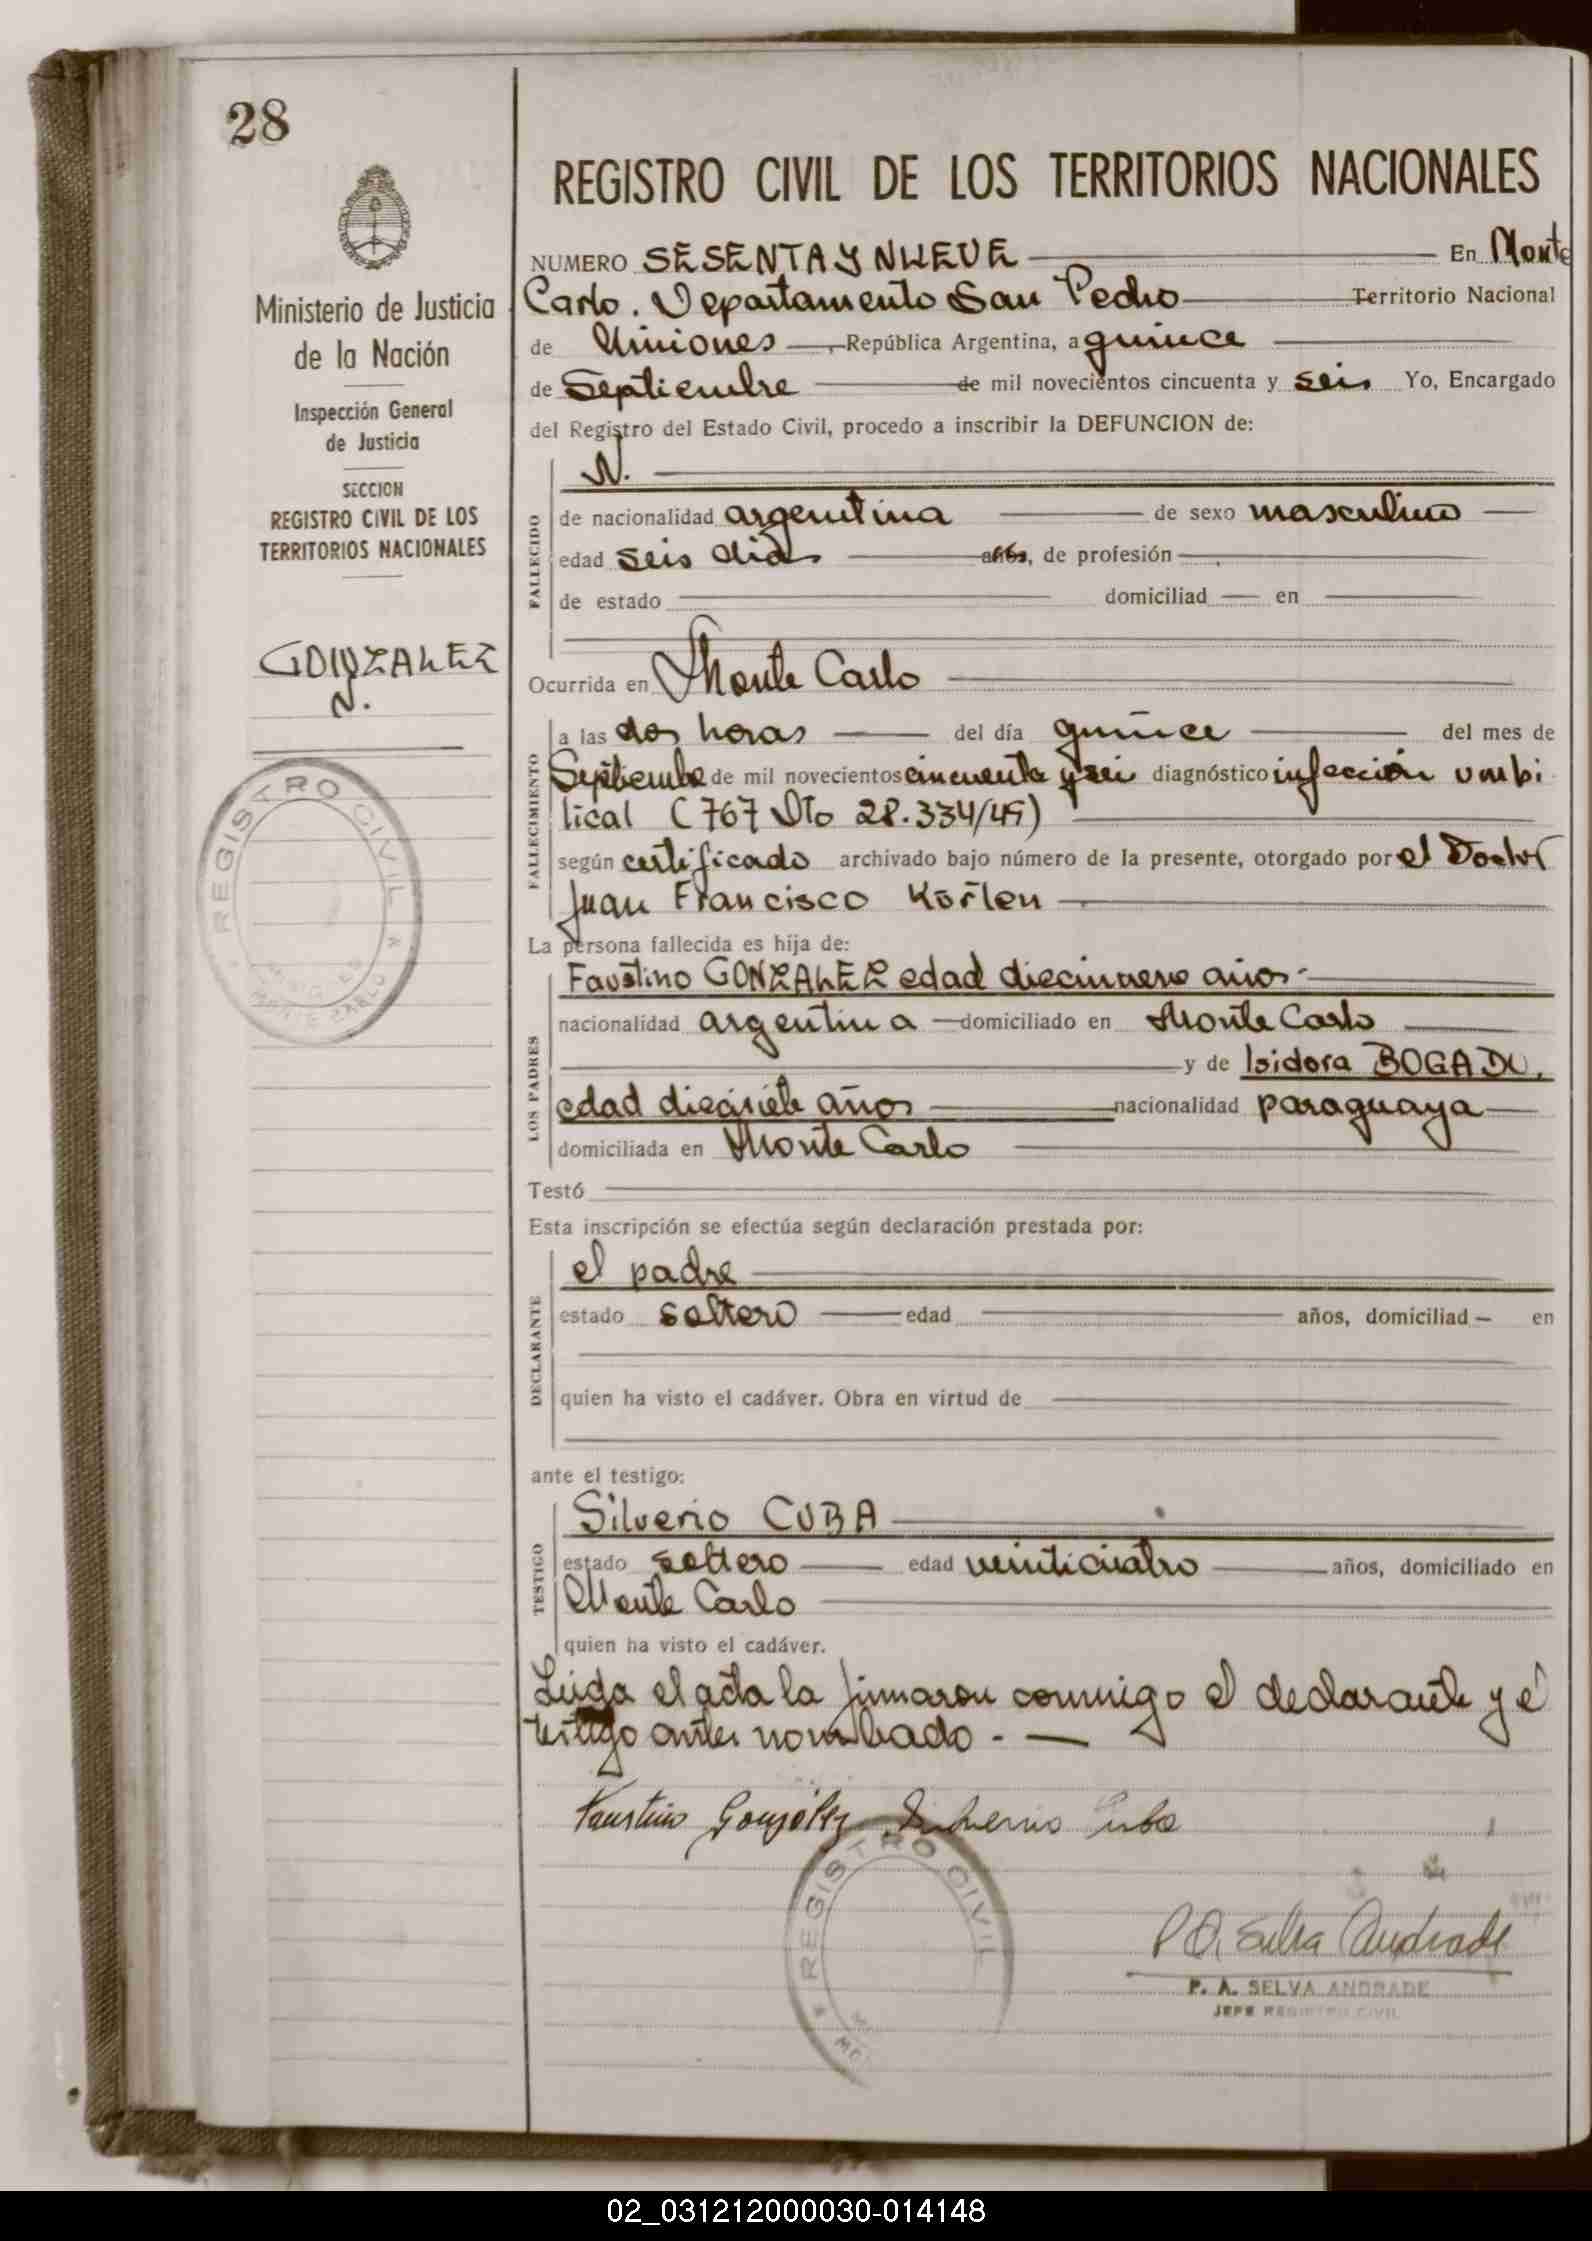 28
Ministerio de Justicia
de la Nación
Inspección General
de Justicia
SECCION
REGISTRO CIVIL DE LOS
TERRITORIOS NACIONALES
GONZALEZ
N.
REGISTRO CIVIL
MONTE CARLO
REGISTRO CIVIL DE LOS TERRITORIOS NACIONALES
NUMERO SESENTA Y NUEVE En Monte
Carlo. Departamento San Pedro Territorio Nacional
de Misiones, República Argentina, a quince
de Septiembre de mil novecientos cincuenta y seis Yo, Encargado
del Registro del Estado Civil, procedo a inscribir la DEFUNCION de:
N.
FALLECIDO
de nacionalidad argentina de sexo masculino
edad seis dias años, de profesión
de estado domiciliad en
Ocurrida en Monte Carlo
FALLECIMIENTO
a las dos horas del día quince del mes de
Septiembre de mil novecientos cincuenta y seis diagnóstico infección umbi
lical (767 Dto 28.334/45)
según certificado archivado bajo número de la presente, otorgado por el Doctor
Juan Francisco
La persona fallecida es hija de:
LOS PADRES
Faustino GONZALEZ edad diecinueve años
nacionalidad argentina domiciliado en Monte Carlo
y de Isidora BOGADO,
edad diecisiete años nacionalidad paraguaya
domiciliada en Monte Carlo
Testó
Esta inscripción se efectúa según declaración prestada por:
DECLARANTE
el padre
estado soltero edad años, domiciliad en
quien ha visto el cadáver. Obra en virtud de
ante el testigo:
TESTIGO
Silverio CUBA
estado soltero edad veinticuatro años, domiciliado en
Monte Carlo
quien ha visto el cadáver.
Leida el acta la firmaron conmigo el declarante y el
testigo antes nombrado.-
Faustino González Silverio Cuba
REGISTRO CIVIL
P A Selva Andrade
P. A. SELVA ANDRADE
JEFE REGISTRO CIVIL
02_031212000030-014148